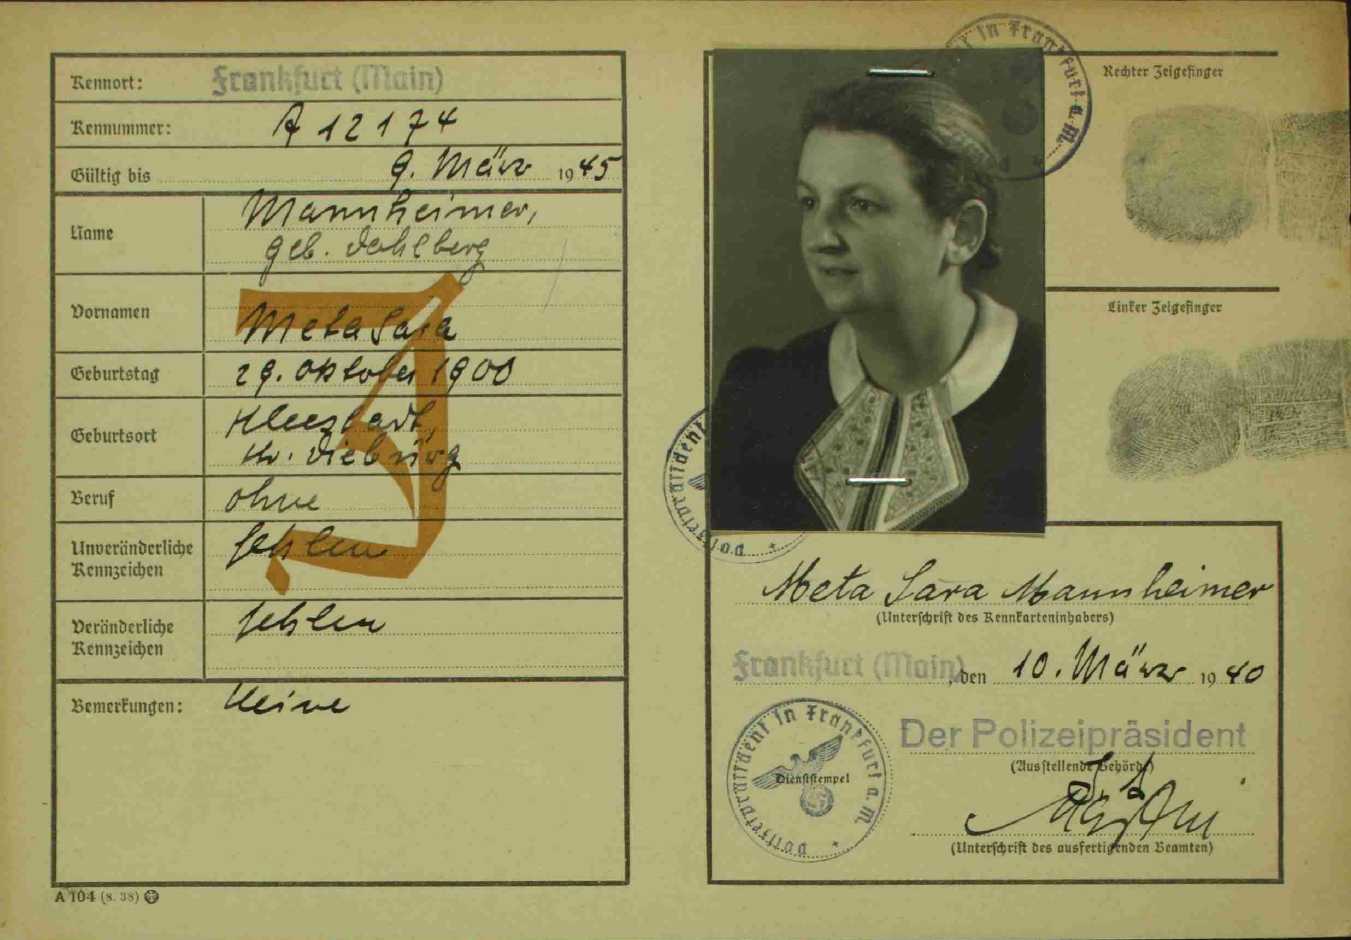 Kennort: Frankfurt (Main)
Kennummer: A 12174
Gültig bis 9. März 1945
Name Mannheimer,
geb. Dahlberg
Vornamen Meta Sara
Geburtstag 29. Oktober 1900
Geburtsort Kleestadt,
Kr. Dieburg
Beruf ohne
Unveränderliche Kennzeichen fehlen
Veränderliche Kennzeichen fehlen
Bemerkungen: Keine
J
A 104 (8. 38)
Rechter Zeigefinger
Linker Zeigefinger
in Frankfurt a. M.
Polizeipräsident
Meta Sara Mannheimer
(Unterschrift des Kennkarteninhabers)
Frankfurt (Main), den 10. März 1940
Der Polizeipräsident
(Ausstellende Behörde)
Polizeipräsident in Frankfurt a. M.
Dienststempel
(Unterschrift des ausfertigenden Beamten)